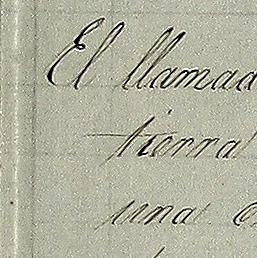 El llamad
tierra
una